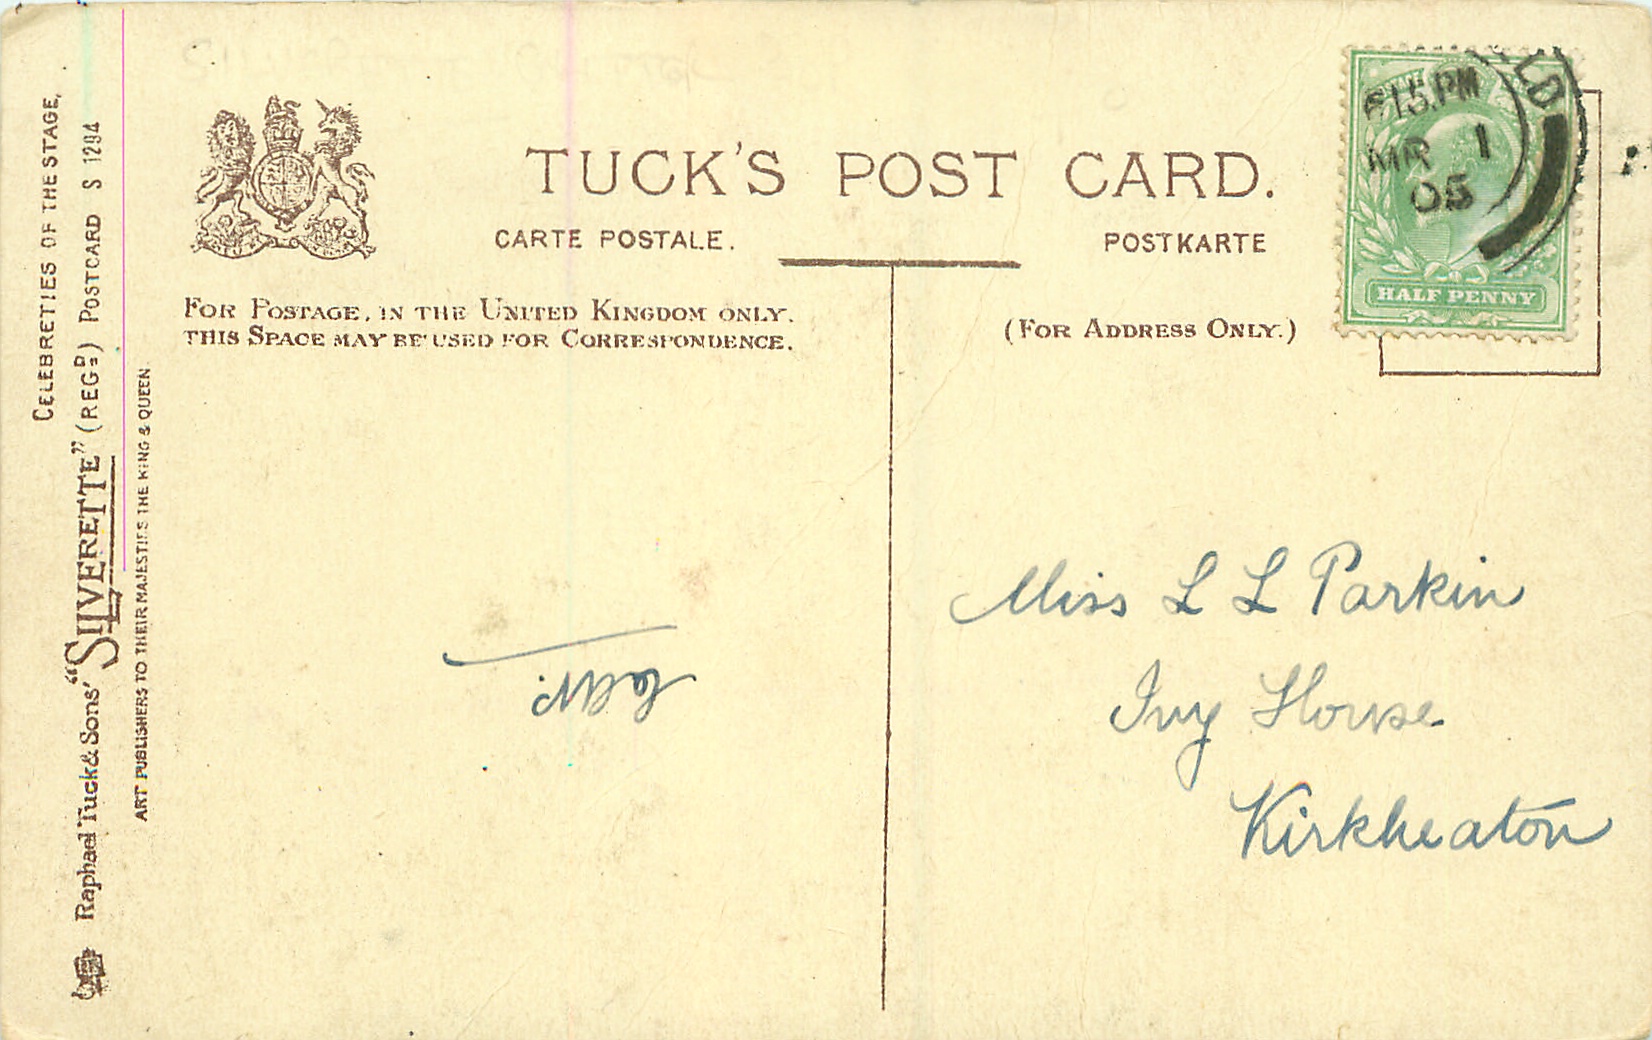 CELEBRETIES OF THE STAGE.
Raphael Tuck & Sons' "SILVERETTE" (REGD) POSTCARD S 1294
ART PUBLISHERS TO THEIR MAJESTIES THE KING & QUEEN
TUCK'S POST CARD.
CARTE POSTALE.
POSTKARTE
FOR POSTAGE, IN THE UNITED KINGDOM ONLY.
THIS SPACE MAY BE USED FOR CORRESPONDENCE.
(FOR ADDRESS ONLY.)
LD
615 PM
MR 1
05
HALF PENNY
Miss L L Parkin
Ivy House
Kirkheaton